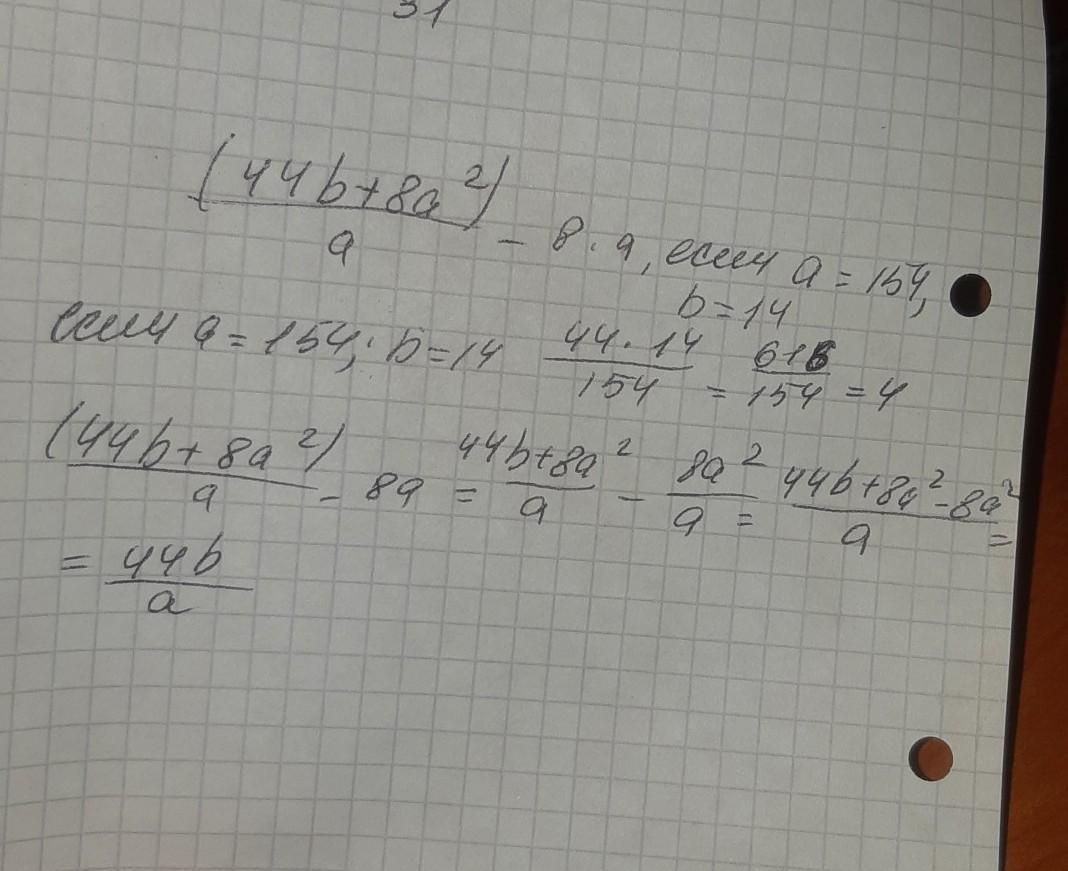 31
(44b+8a²)/a - 8·a, если a = 154,
b = 14
если a = 154; b = 14 44·14/154 = 616/154 = 4
(44b+8a²)/a - 8a = 44b+8a²/a - 8a²/a = 44b+8a²-8a²/a =
= 44b/a